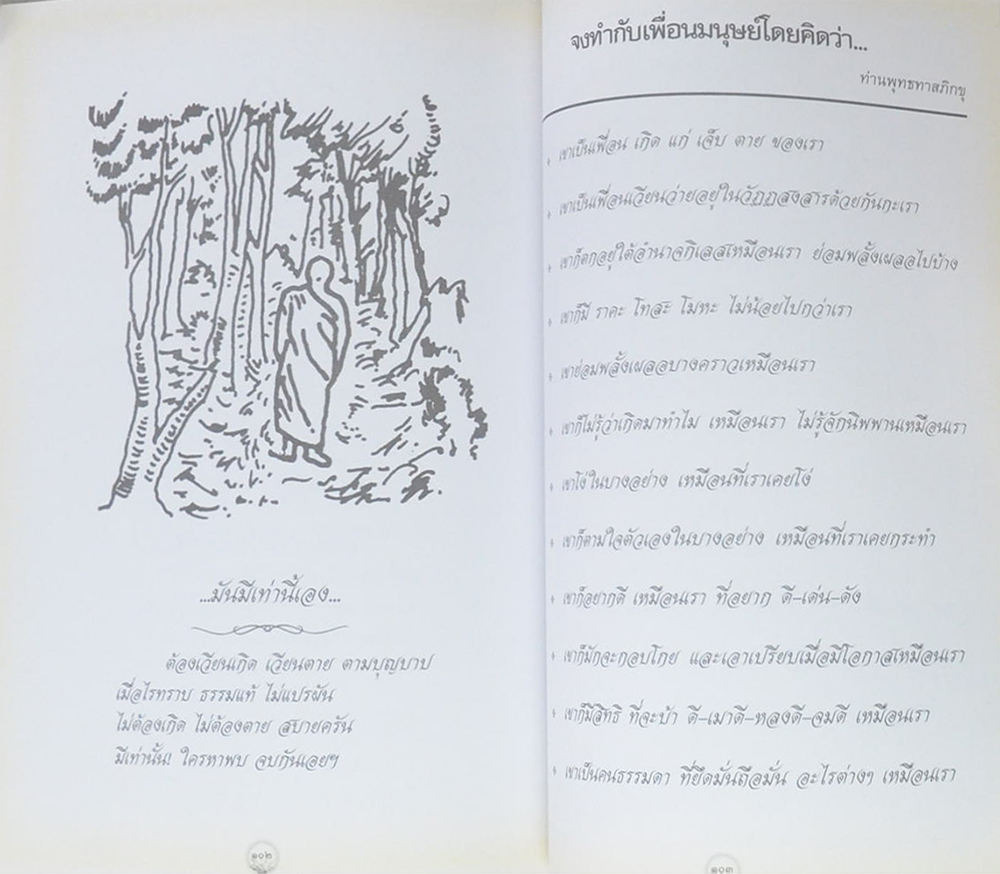 ...มันมีเท่านี้เอง...
ต้องเวียนเกิด เวียนตาย ตามบุญบาป
เมื่อไรทราบ ธรรมแท้ ไม่แปรผัน
ไม่ต้องเกิด ไม่ต้องตาย สบายครัน
มีเท่านั้น! ใครหาพบ จบกันเอยฯ
๑๐๒
จงทำกับเพื่อนมนุษย์โดยคิดว่า...
ท่านพุทธทาสภิกขุ
เขาเป็นเพื่อน เกิด แก่ เจ็บ ตาย ของเรา
เขาเป็นเพื่อนเวียนว่ายอยู่ในวัฏฏสงสารด้วยกันกะเรา
เขาก็ตกอยู่ใต้อำนาจกิเลสเหมือนเรา ย่อมพลั้งเผลอไปบ้าง
เขาก็มี ราคะ โทสะ โมหะ ไม่น้อยไปกว่าเรา
เขาย่อมพลั้งเผลอบางคราวเหมือนเรา
เขาก็ไม่รู้ว่าเกิดมาทำไม เหมือนเรา ไม่รู้จักนิพพานเหมือนเรา
เขาโง่ในบางอย่าง เหมือนที่เราเคยโง่
เขาก็ตามใจตัวเองในบางอย่าง เหมือนที่เราเคยกระทำ
เขาก็อยากดี เหมือนเรา ที่อยาก ดี–เด่น–ดัง
เขาก็มักจะกอบโกย และเอาเปรียบเมื่อมีโอกาสเหมือนเรา
เขาก็มีสิทธิ ที่จะบ้า ดี–เมาดี–หลงดี–จมดี เหมือนเรา
เขาเป็นคนธรรมดา ที่ยึดมั่นถือมั่น อะไรต่างๆ เหมือนเรา
๑๐๓